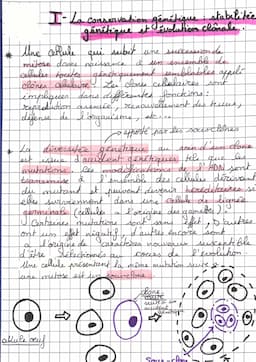 I - La conservation génétique, stabilité
génétique et évolution clonale.
Une cellule qui subit une succession de
mitose donne naissance à un ensemble de
cellules toutes génétiquement semblables appelé
clones cellulaire. Les clones cellulaires sont
impliqués dans différentes fonctions :
reproduction asexuée, renouvellement des tissus,
défense de l'organisme, etc...
apporté par les sous-clones
La diversité génétique au sein d'un clone
est issue d'accident génétiques tels que les
mutations. Les modifications de l'ADN sont
à l'ensemble des cellules dérivant
du mutant et peuvent devenir héréditaires si
elles surviennent dans une cellule de lignée
germinale (cellules à l'origine des gamètes).
Certaines mutations sont sans effet, d'autres
ont un effet négatif, d'autres encore sont
à l'origine de caractères nouveaux susceptible
d'être sélectionnés au cours de l'évolution.
Une cellule présentant la même mutation suite à
une mitose est un sous-clone.
clone
cellule œuf
Sous-clone